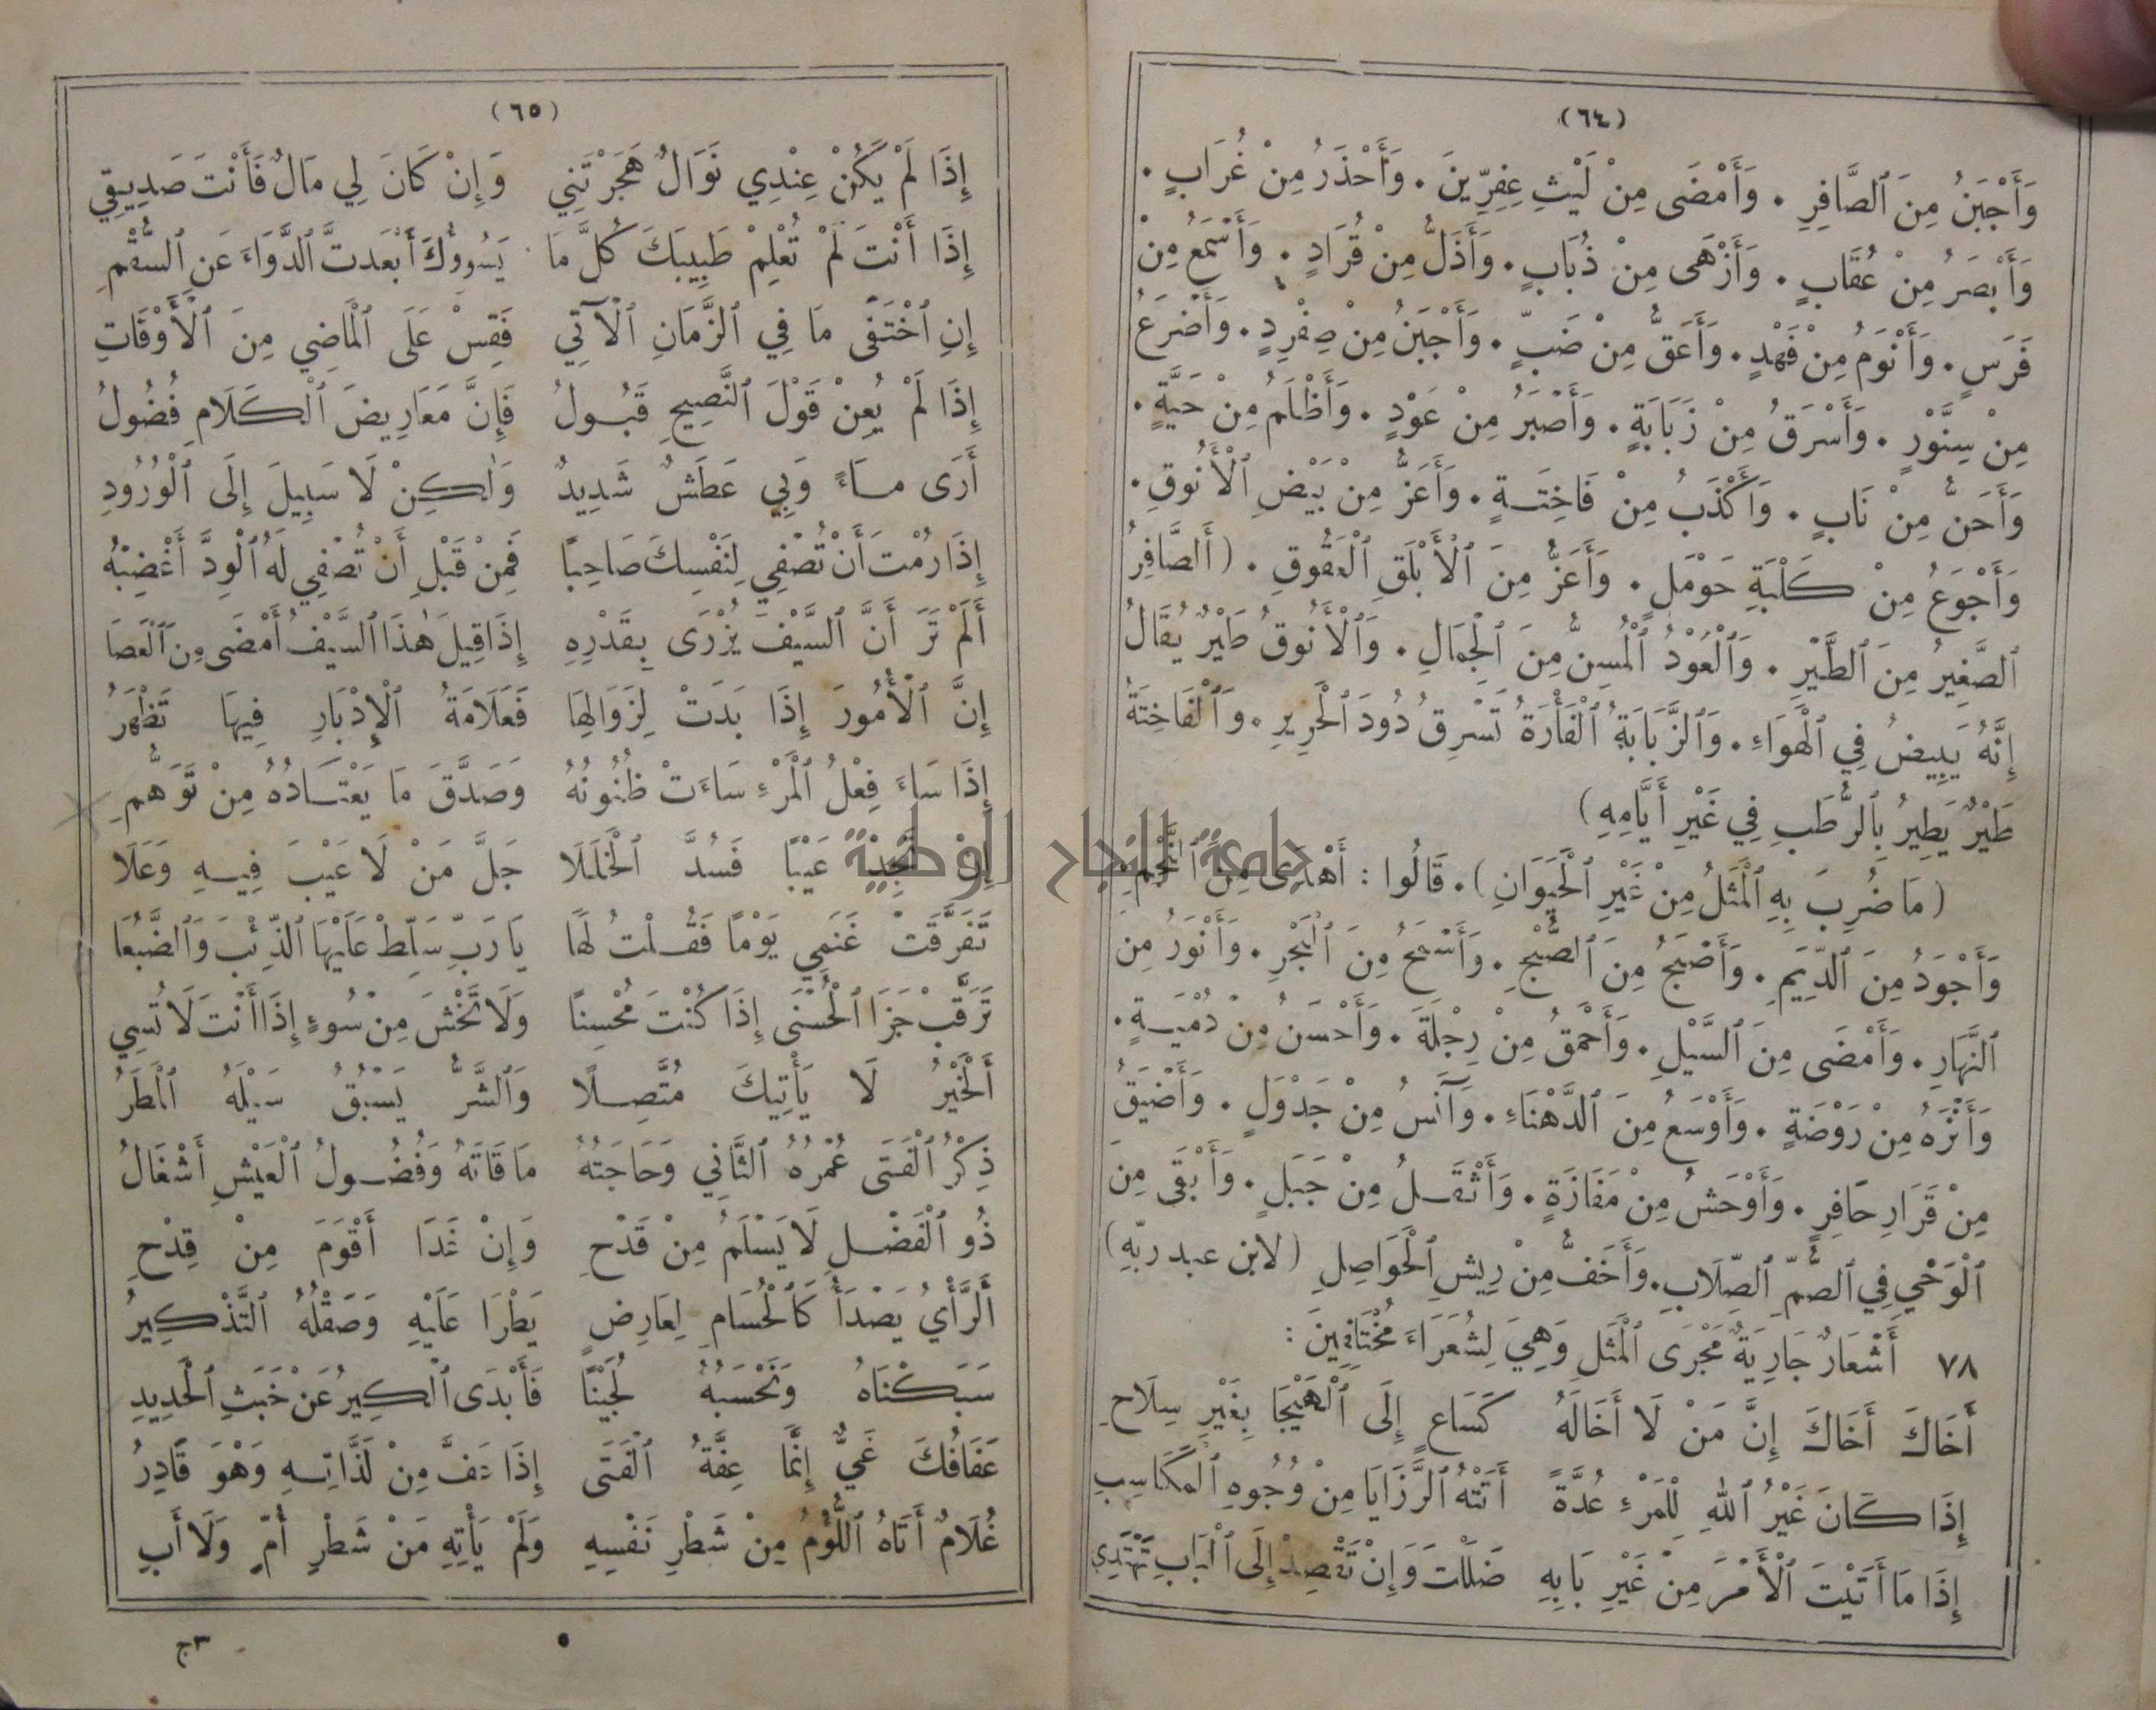 (٦٤)
وَأَجْبَنُ مِنَ ٱلصَّافِرِ . وَأَمْضَى مِنْ لَيْثِ عِفِرِّينَ . وَأَحْذَرُ مِنْ غُرَابٍ .
وَأَبْصَرُ مِنْ عُقَابٍ . وَأَزْهَى مِنْ ذُبَابٍ . وَأَذَلُّ مِنْ قُرَادٍ . وَأَسْمَعُ مِنْ
فَرَسٍ . وَأَنْوَمُ مِنْ فَهْدٍ . وَأَعَقُّ مِنْ ضَبٍّ . وَأَجْبَنُ مِنْ صِفْرِدٍ . وَأَضْرَعُ
مِنْ سِنَّوْرٍ . وَأَسْرَقُ مِنْ زَبَابَةٍ . وَأَصْبَرُ مِنْ عَوْدٍ . وَأَظْلَمُ مِنْ حَيَّةٍ .
وَأَحَنُّ مِنْ نَابٍ . وَأَكْذَبُ مِنْ فَاخِتَةٍ . وَأَعَزُّ مِنْ بَيْضِ ٱلْأَنُوقِ .
وَأَجْوَعُ مِنْ كَلْبَةِ حَوْمَلٍ . وَأَعَزُّ مِنَ ٱلْأَبْلَقِ ٱلْعَقُوقِ . (أَلصَّافِرُ
ٱلصَّغِيرُ مِنَ ٱلطَّيْرِ . وَٱلْعَوْدُ ٱلْمُسِنُّ مِنَ ٱلْجِمَالِ . وَٱلْأَنُوقُ طَيْرٌ يُقَالُ
إِنَّهُ يَبِيضُ فِي ٱلْهَوَاءِ . وَٱلزَّبَابَةُ ٱلْفَأْرَةُ تَسْرِقُ دُودَ ٱلْحَرِيرِ . وَٱلْفَاخِتَةُ
طَيْرٌ يَطِيرُ بِٱلرُّطَبِ فِي غَيْرِ أَيَّامِهِ)
(مَا ضُرِبَ بِهِ ٱلْمَثَلُ مِنْ غَيْرِ ٱلْحَيَوَانِ) . قَالُوا : أَهْدَى مِنَ ٱلنَّجْمِ
وَأَجْوَدُ مِنَ ٱلدِّيَمِ . وَأَصْبَحُ مِنَ ٱلصُّبْحِ . وَأَسْمَحُ مِنَ ٱلْبَحْرِ . وَأَنْوَرُ مِنَ
ٱلنَّهَارِ . وَأَمْضَى مِنَ ٱلسَّيْلِ . وَأَحْمَقُ مِنْ رِجْلَةَ . وَأَحْسَنُ مِنْ دُمْيَةٍ .
وَأَنْزَهُ مِنْ رَوْضَةٍ . وَأَوْسَعُ مِنَ ٱلدَّهْنَاءِ . وَآنَسُ مِنْ جَدْوَلٍ . وَأَضْيَقُ
مِنْ قَرَارِ حَافِرٍ . وَأَوْحَشُ مِنْ مَفَازَةٍ . وَأَثْقَلُ مِنْ جَبَلٍ . وَأَبْقَى مِنَ
ٱلْوَحْيِ فِي ٱلصُّمِّ ٱلصِّلَابِ . وَأَخَفُّ مِنْ رِيشِ ٱلْحَوَاصِلِ (لابن عبد ربّهِ)
٧٨ أَشْعَارٌ جَارِيَةٌ مَجْرَى ٱلْمَثَلِ وَهِيَ لِشُعَرَاءَ مُخْتَلِفِينَ :
أَخَاكَ أَخَاكَ إِنَّ مَنْ لَا أَخَالَهُ كَسَاعٍ إِلَى ٱلْهَيْجَا بِغَيْرِ سِلَاحِ
إِذَا كَانَ غَيْرُ ٱللهِ لِلْمَرْءِ عُدَّةً أَتَتْهُ ٱلرَّزَايَا مِنْ وُجُوهِ ٱلْمَكَاسِبِ
إِذَا مَا أَتَيْتَ ٱلْأَمْرَ مِنْ غَيْرِ بَابِهِ ضَلَلْتَ وَإِنْ تَقْصِدْ إِلَى ٱلْبَابِ تَهْتَدِي
(٦٥)
إِذَا لَمْ يَكُنْ عِنْدِي نَوَالٌ هَجَرْتَنِي وَإِنْ كَانَ لِي مَالٌ فَأَنْتَ صَدِيقِي
إِذَا أَنْتَ لَمْ تُعْلِمْ طَبِيبَكَ كُلَّ مَا يَسُوؤُكَ أَبْعَدتَّ ٱلدَّوَاءَ عَنِ ٱلسُّقْمِ
إِنِ ٱخْتَفَى مَا فِي ٱلزَّمَانِ ٱلْآتِي فَقِسْ عَلَى ٱلْمَاضِي مِنَ ٱلْأَوْقَاتِ
إِذَا لَمْ يُعِنْ قَوْلَ ٱلنَّصِيحِ قَبُولُ فَإِنَّ مَعَارِيضَ ٱلْكَلَامِ فُضُولُ
أَرَى مَاءً وَبِي عَطَشٌ شَدِيدٌ وَلٰكِنْ لَا سَبِيلَ إِلَى ٱلْوُرُودِ
إِذَا رُمْتَ أَنْ تُصْفِي لِنَفْسِكَ صَاحِبًا فَمِنْ قَبْلِ أَنْ تُصْفِي لَهُ ٱلْوِدَّ أَغْضِبْهُ
أَلَمْ تَرَ أَنَّ ٱلسَّيْفَ يُزْرَى بِقَدْرِهِ إِذَا قِيلَ هٰذَا ٱلسَّيْفُ أَمْضَى مِنَ ٱلْعَصَا
إِنَّ ٱلْأُمُورَ إِذَا بَدَتْ لِزَوَالِهَا فَعَلَامَةُ ٱلْإِدْبَارِ فِيهَا تَظْهَرُ
إِذَا سَاءَ فِعْلُ ٱلْمَرْءِ سَاءَتْ ظُنُونُهُ وَصَدَّقَ مَا يَعْتَادُهُ مِنْ تَوَهُّمِ
إِنْ تَجِدْ عَيْبًا فَسُدَّ ٱلْخَلَلَا جَلَّ مَنْ لَا عَيْبَ فِيهِ وَعَلَا
تَفَرَّقَتْ غَنَمِي يَوْمًا فَقُلْتُ لَهَا يَا رَبِّ سَلِّطْ عَلَيْهَا ٱلذِّئْبَ وَٱلضَّبُعَا
تَرَقَّبْ جَزَا ٱلْحُسْنَى إِذَا كُنْتَ مُحْسِنًا وَلَا تَخْشَ مِنْ سُوءٍ إِذَا أَنْتَ لَا تُسِي
أَلْخَيْرُ لَا يَأْتِيكَ مُتَّصِلًا وَٱلشَّرُّ يَسْبُقُ سَيْلَهُ ٱلْمَطَرُ
ذِكْرُ ٱلْفَتَى عُمْرُهُ ٱلثَّانِي وَحَاجَتُهُ مَا قَاتَهُ وَفُضُولُ ٱلْعَيْشِ أَشْغَالُ
ذُو ٱلْفَضْلِ لَا يَسْلَمُ مِنْ قَدْحِ وَإِنْ غَدَا أَقْوَمَ مِنْ قِدْحِ
أَلرَّأْيُ يَصْدَأُ كَٱلْحُسَامِ لِعَارِضٍ يَطْرَا عَلَيْهِ وَصَقْلُهُ ٱلتَّذْكِيرُ
سَبَكْنَاهُ وَنَحْسَبُهُ لُجَيْنًا فَأَبْدَى ٱلْكِيرُ عَنْ خَبَثِ ٱلْحَدِيدِ
عَفَافُكَ غَيٌّ إِنَّمَا عِفَّةُ ٱلْفَتَى إِذَا عَفَّ مِنْ لَذَّاتِهِ وَهْوَ قَادِرُ
غُلَامٌ أَتَاهُ ٱللُّؤْمُ مِنْ شَطْرِ نَفْسِهِ وَلَمْ يَأْتِهِ مَنْ شَطْرِ أُمٍّ وَلَا أَبِ
٣ج
جامعة النجاح الوطنية